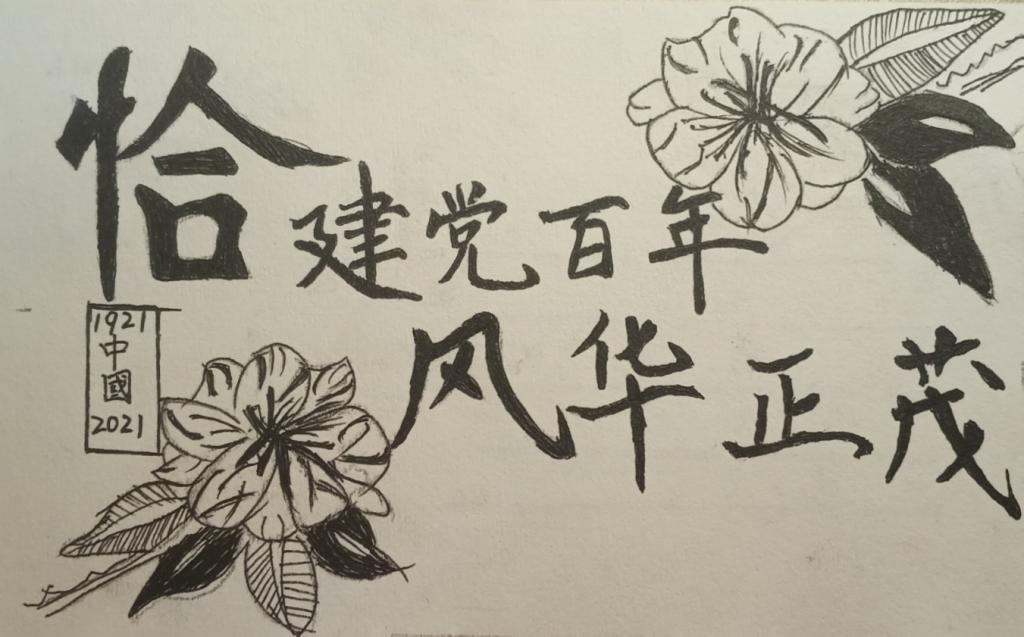 恰
建党百年
风华正茂
1921
中國
2021